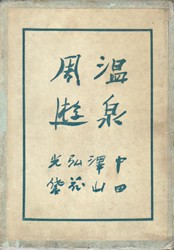 温泉
周遊
中澤弘光
田山花袋